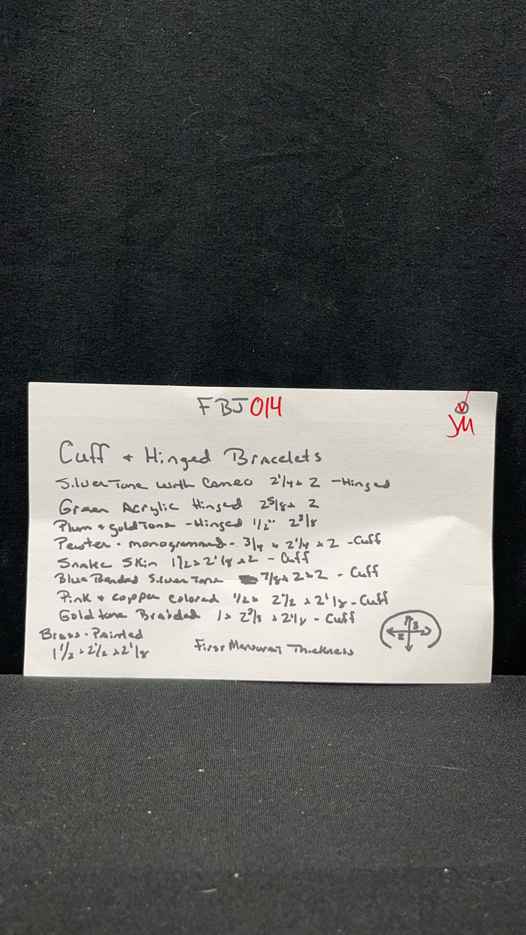 FBJ014
JM
Cuff + Hinged Bracelets
Silver Tone with Cameo 2 1/4 x 2 - Hinged
Green Acrylic Hinged 2 5/8 x 2
Plum + gold Tone - Hinged 1/2" 2 3/8
Pewter - monogrammed - 3/4 x 2 1/4 x 2 - Cuff
Snake Skin 1 1/2 x 2 1/8 x 2 - Cuff
Blue Banded Silver Tone 7/8 x 2 x 2 - Cuff
Pink + copper colored 1/2 x 2 1/2 x 2 1/8 - Cuff
Gold tone Braided 1 x 2 3/8 x 2 1/8 - Cuff
Brass - Painted
1 1/2 x 2 1/2 x 2 1/8
First Measurement Thickness
2 3